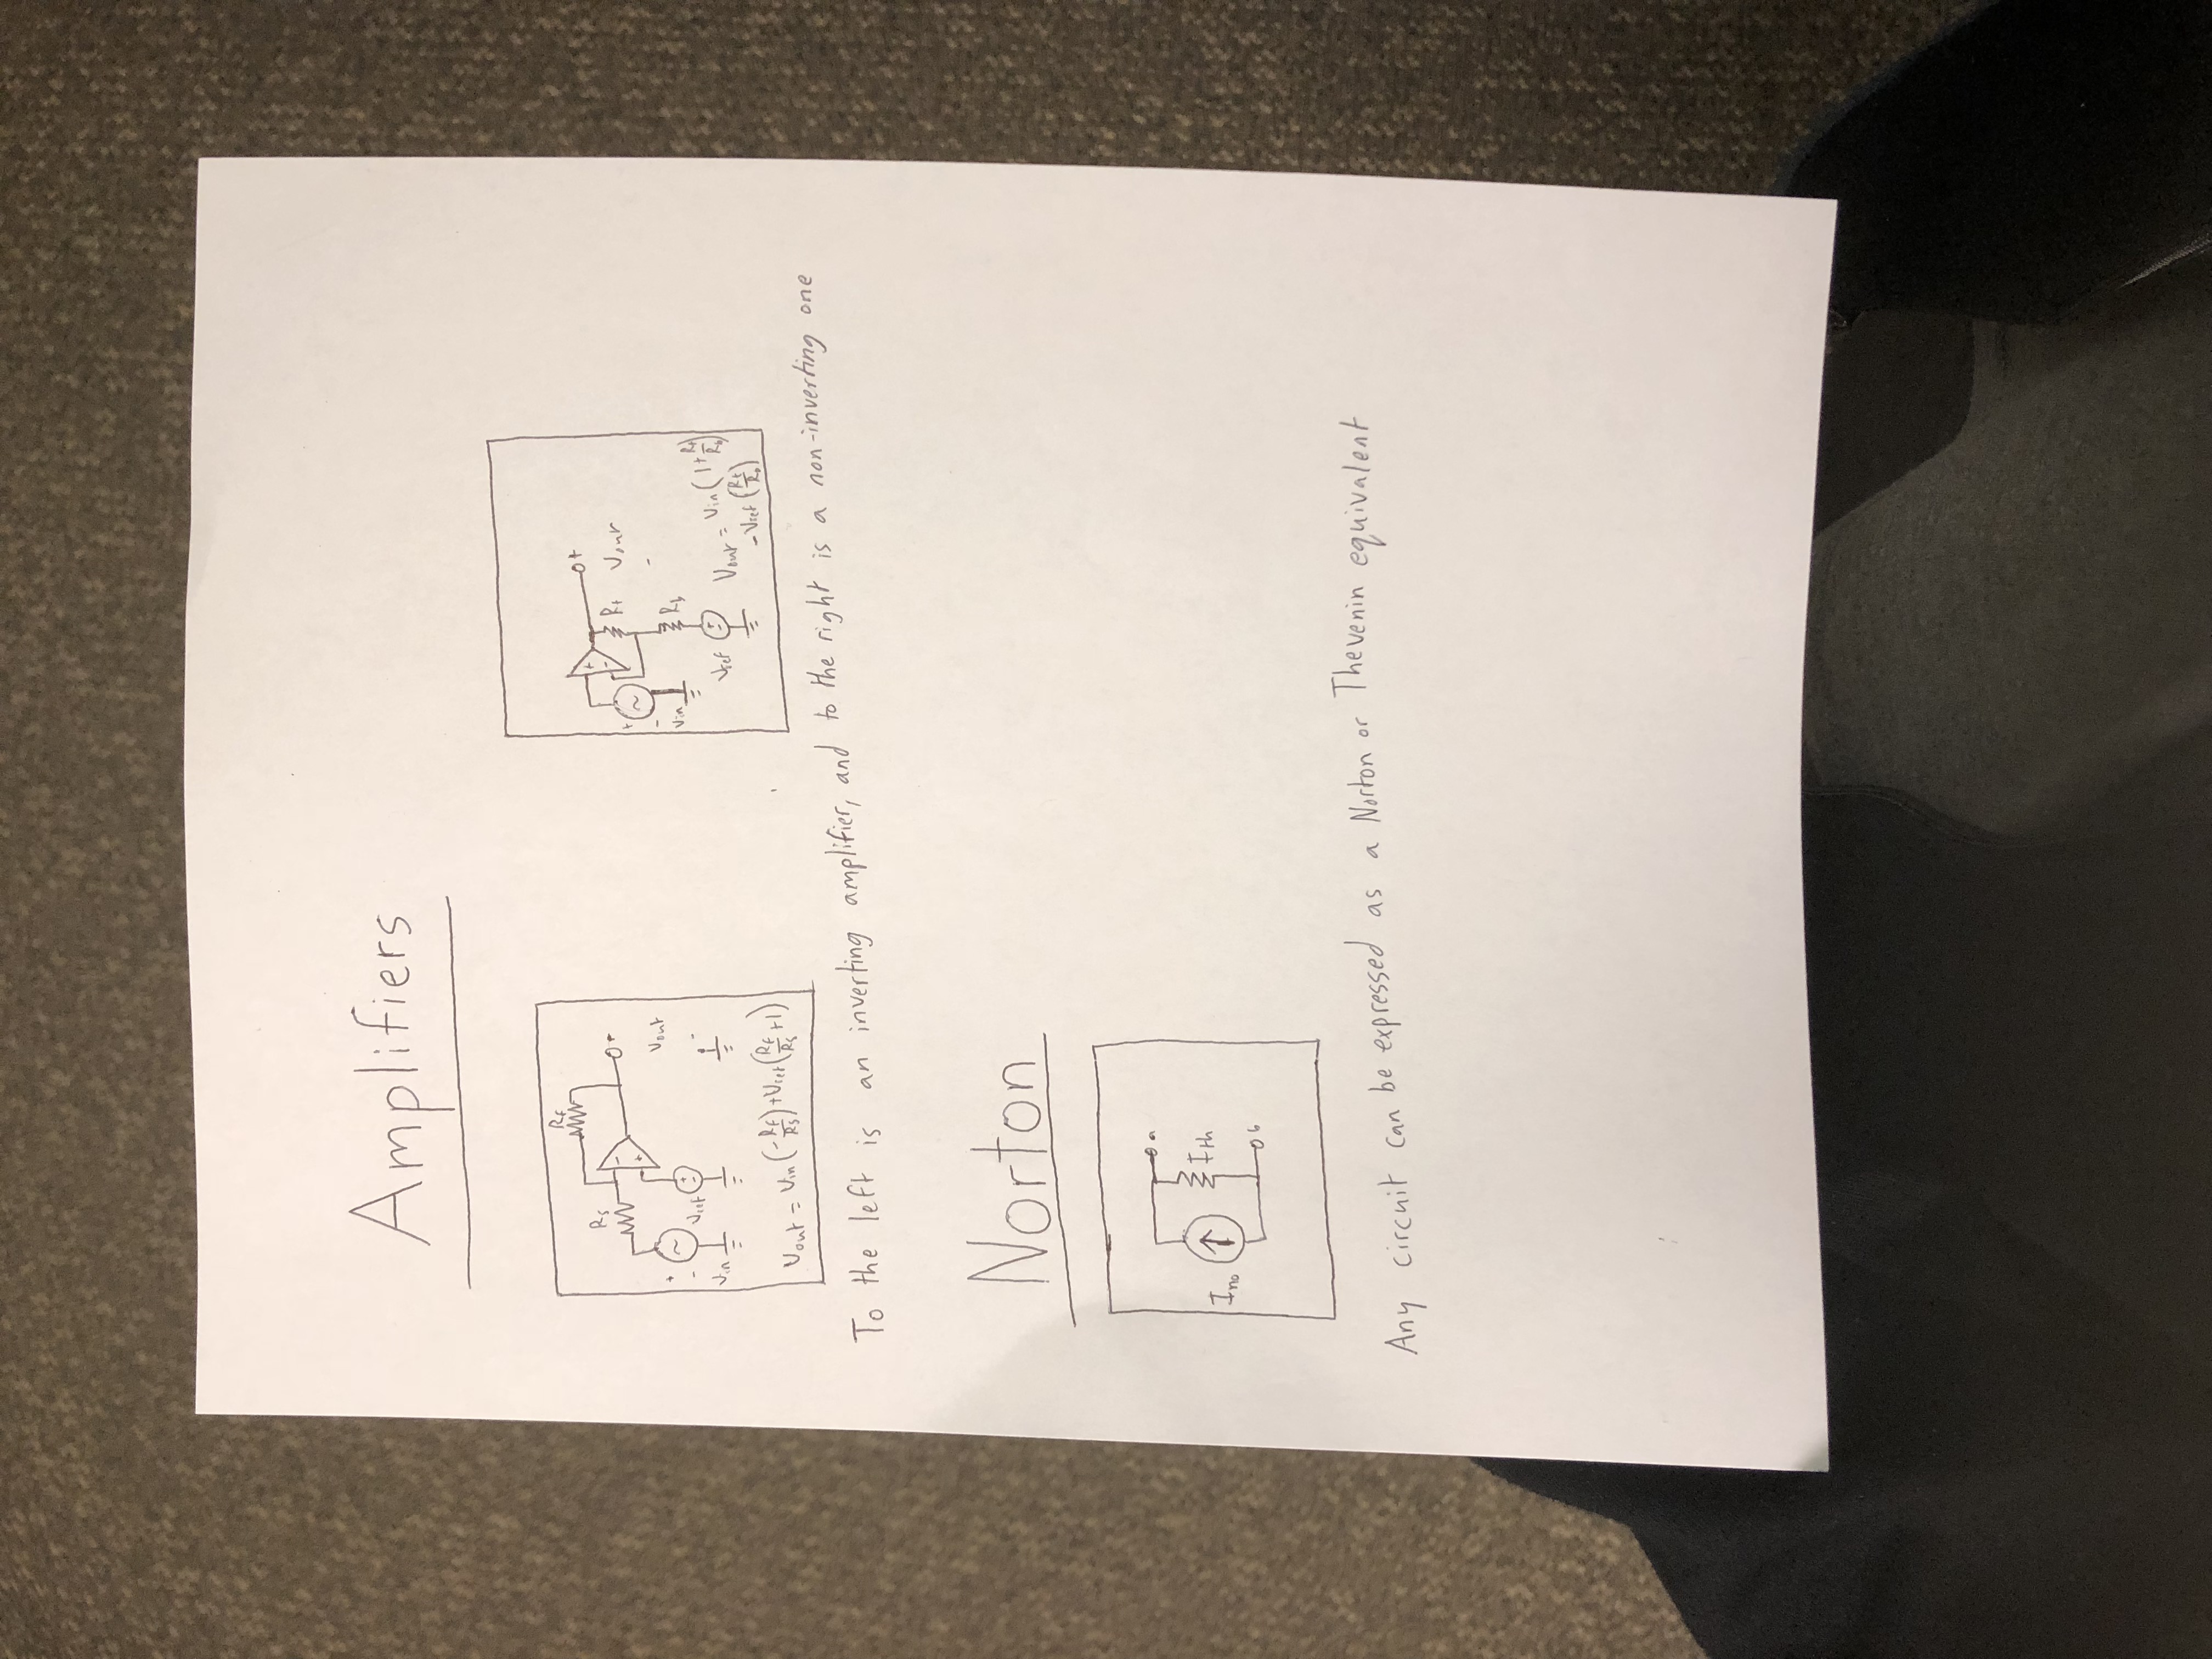 Amplifiers
Rf
Rs
-
+
o+
+
-
Vin
Vref
+
-
Vout
-
Vout = Vin (-Rf/Rs) + Vref (Rf/Rs + 1)
+
-
o+
+
-
Vin
Rt
Vout
-
Rb
Vref
+
-
Vout = Vin (1 + Rt/Rb)
- Vref (Rt/Rb)
To the left is an inverting amplifier, and to the right is a non-inverting one
Norton
a
Ino
Ith
b
Any circuit can be expressed as a Norton or Thevenin equivalent